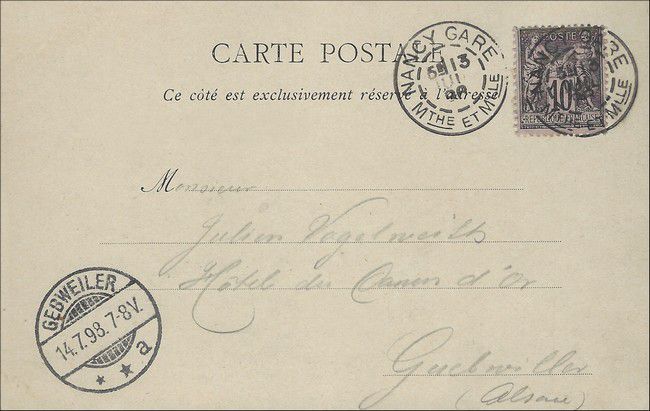 CARTE POSTALE
Ce côté est exclusivement réservé à l'adresse
NANCY GARE
13
98
MTHE ET MLLE
POSTE
10
REPUBLIQUE FRANÇAISE
Monsieur
Julien Vogelweith
Hôtel du Canon d'Or
Guebwiller
(Alsace)
GEBWEILER
14.7.98.7-8V.
* * a